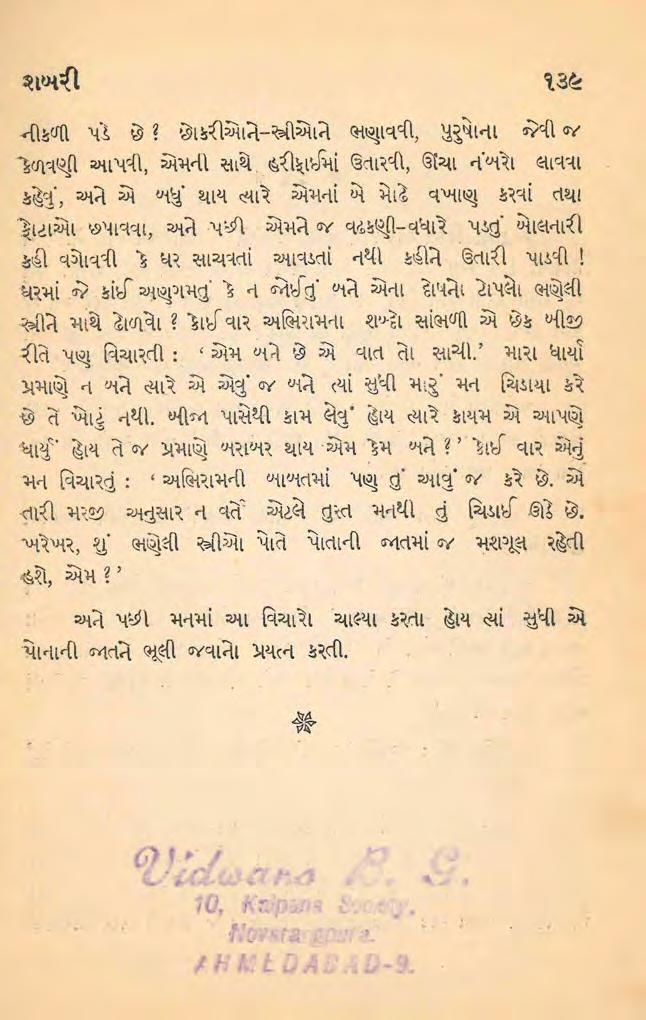 શબરી ૧૩૯
નીકળી પડે છે ? છોકરીઓને–સ્ત્રીઓને ભણાવવી, પુરુષોના જેવી જ
કેળવણી આપવી, એમની સાથે હરીફાઈમાં ઉતારવી, ઊંચા નંબરો લાવવા
કહેવું, અને એ બધું થાય ત્યારે એમનાં બે મોઢે વખાણ કરવાં તથા
ફોટાઓ છપાવવા, અને પછી એમને જ વઢકણી–વધારે પડતું બોલનારી
કહી વગોવવી કે ઘર સાચવતાં આવડતાં નથી કહીને ઉતારી પાડવી !
ઘરમાં જે કાંઈ અણગમતું કે ન જોઈતું બને એના દોષનો ટોપલો ભણેલી
સ્ત્રીને માથે ઢોળવો ? કોઈ વાર અભિરામના શબ્દો સાંભળી એ છેક બીજી
રીતે પણ વિચારતી : ‘ એમ બને છે એ વાત તો સાચી.’ મારા ધાર્યા
પ્રમાણે ન બને ત્યારે એ એવું જ બને ત્યાં સુધી મારું મન ચિડાયા કરે
છે તે ખોટું નથી. બીજા પાસેથી કામ લેવું હોય ત્યારે કાયમ એ આપણે
ધાર્યું હોય તે જ પ્રમાણે બરાબર થાય એમ કેમ બને ? ’ કોઈ વાર એનું
મન વિચારતું : ‘ અભિરામની બાબતમાં પણ તું આવું જ કરે છે. એ
તારી મરજી અનુસાર ન વર્તે એટલે તુરત મનથી તું ચિડાઈ ઊઠે છે.
ખરેખર, શું ભણેલી સ્ત્રીઓ પોતે પોતાની જાતમાં જ મશગૂલ રહેતી
હશે, એમ ? ’
અને પછી મનમાં આ વિચારો ચાલ્યા કરતા હોય ત્યાં સુધી એ
પોનાની જાતને ભૂલી જવાનો પ્રયત્ન કરતી.
Vidwans B. G.
10, Kalpana Society,
Navrangpura.
AHMEDABAD-9.